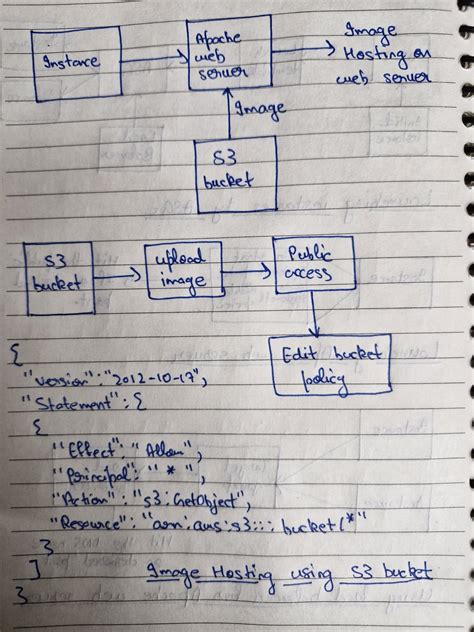 Instance
Apache
web
server
Image
Hosting on
web server
Image
S3
bucket
S3
bucket
upload
image
Public
access
Edit bucket
policy
{
"version":"2012-10-17",
"Statement":{
{
"Effect":"Allow",
"Principal":"*",
"Action":"s3:GetObject",
"Resource":"arn:aws:s3:::bucket/*"
}
]
Image Hosting using S3 bucket
}